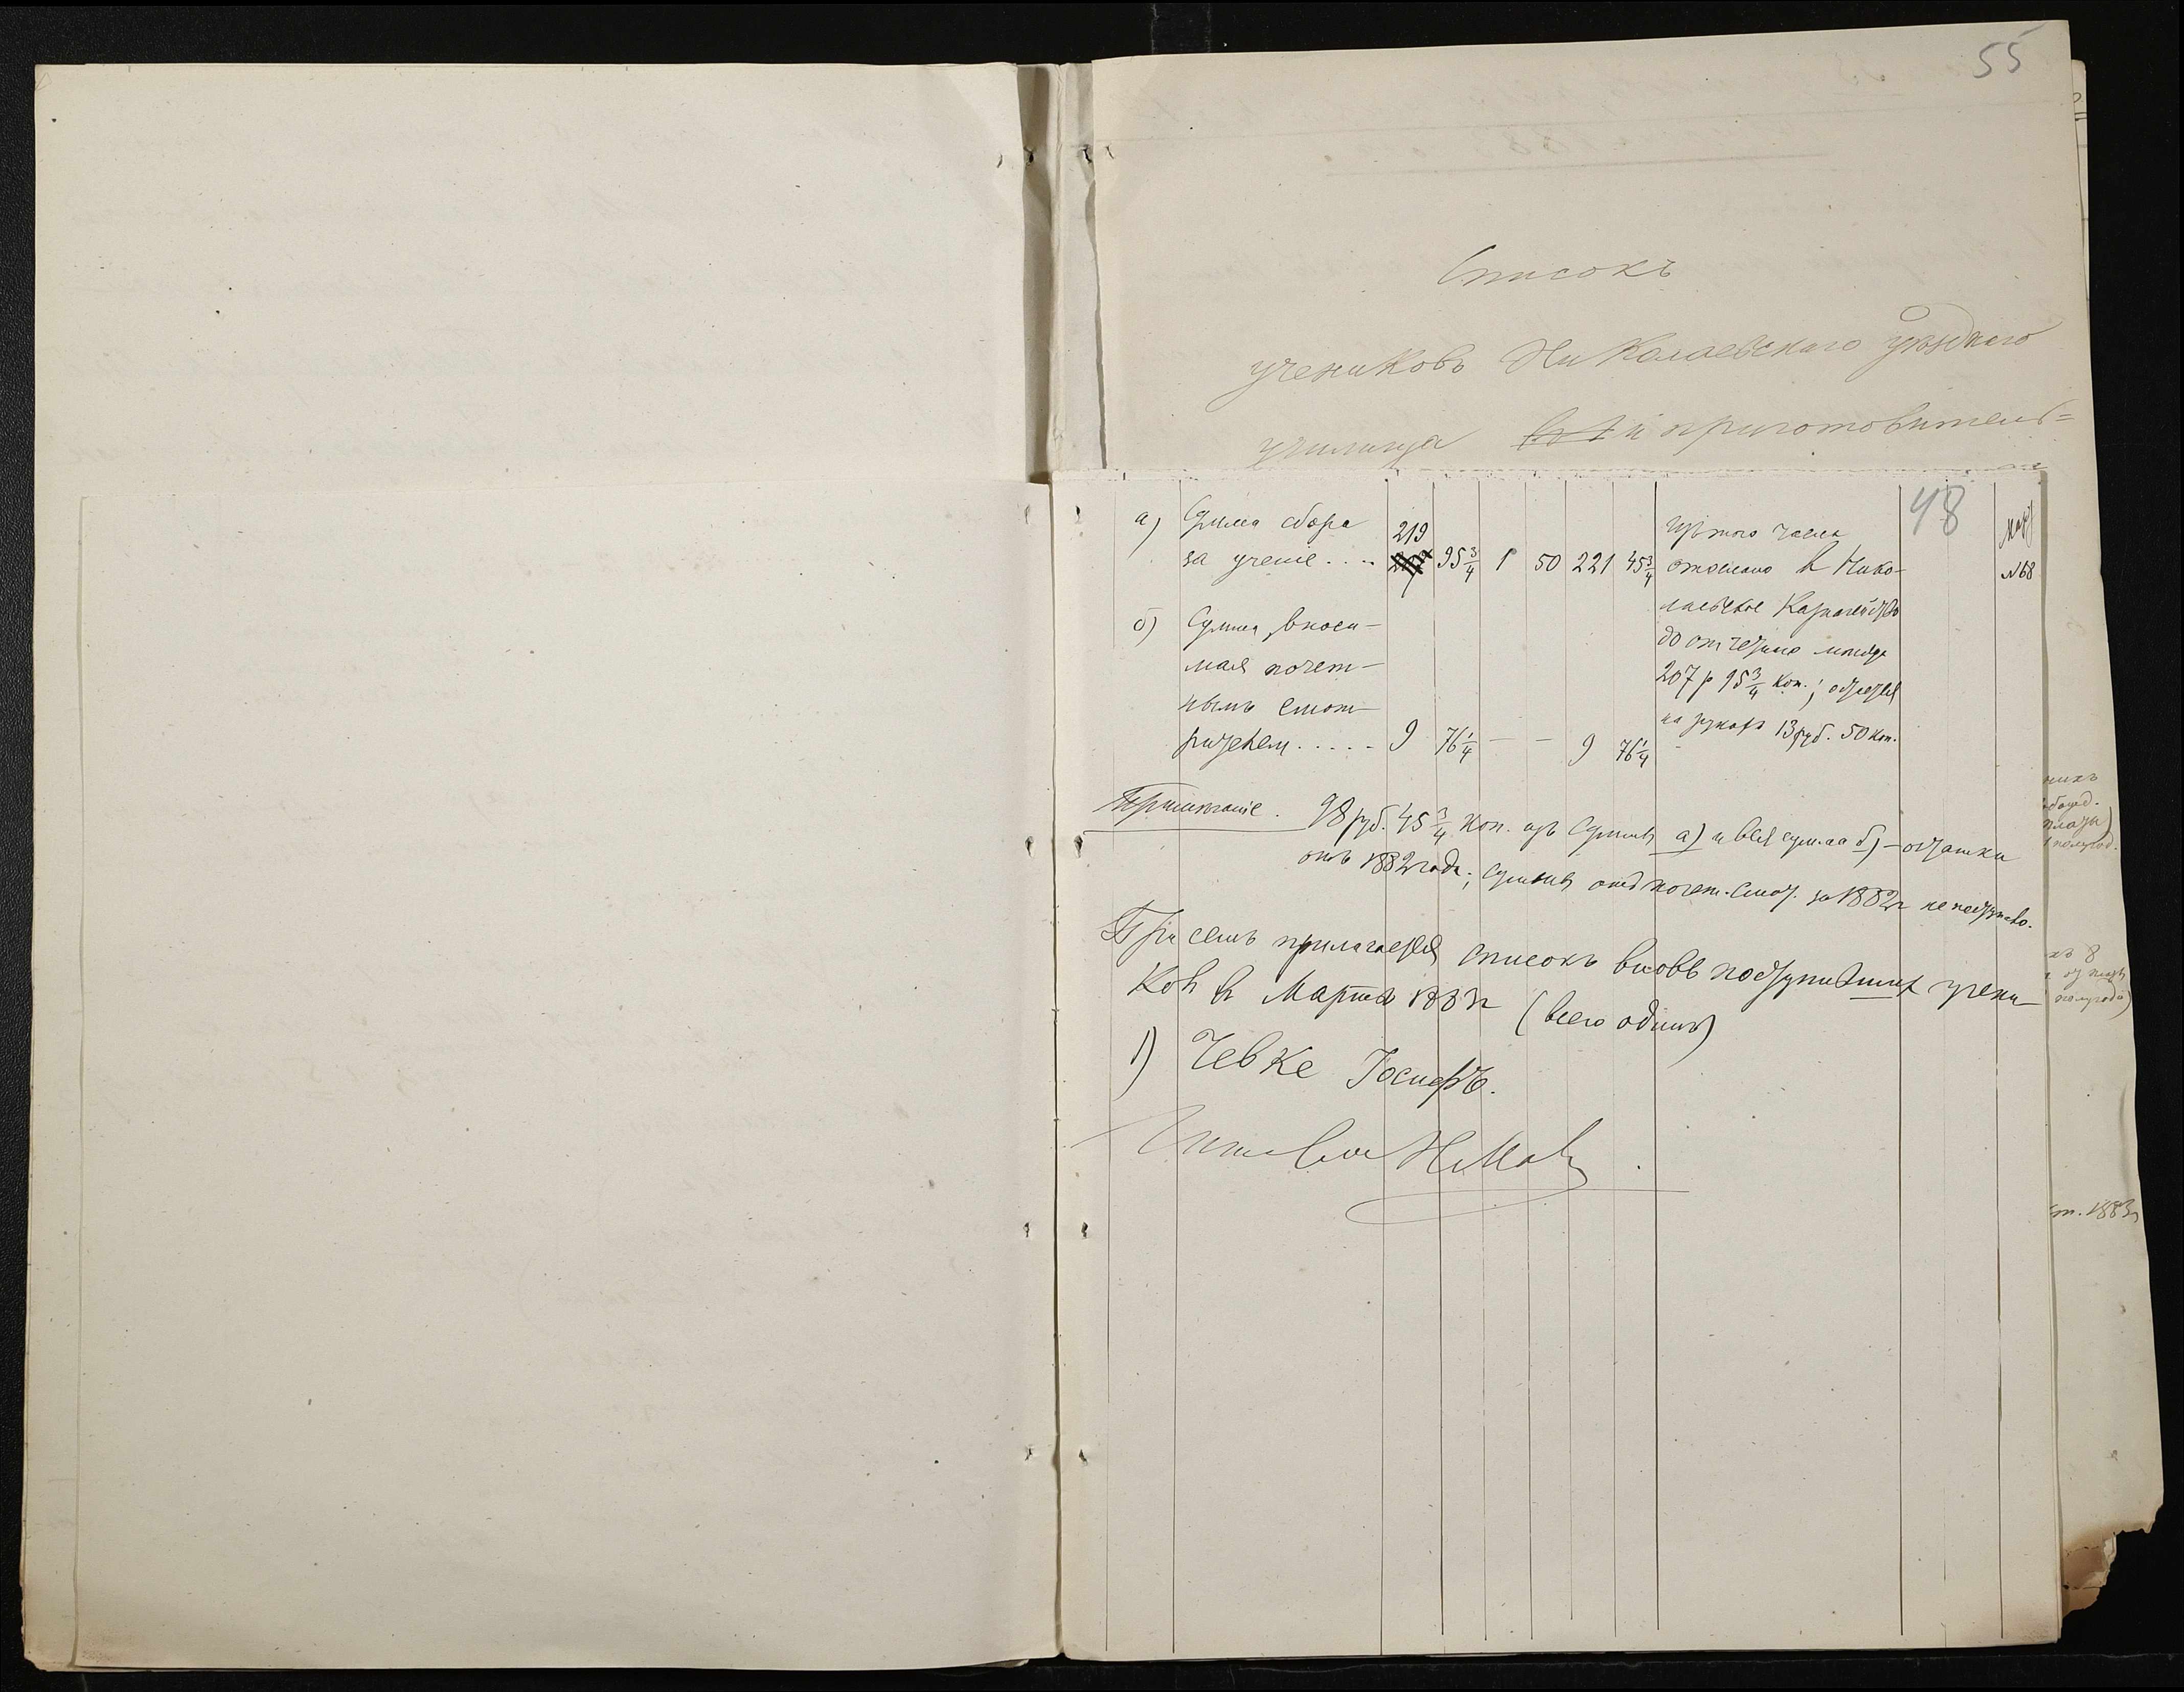 55
Списокъ
учениковъ Николаевскаго уѣзднаго
училища и приготовитель=
48
а) Сумма сбора
за ученіе.... 219 95 3/4 1 50 221 45 3/4
изъ того числа
отослано въ Нико-
лаевское Казначейство
207 р 95 3/4 коп.; остается
на рукахъ 13 руб. 50 коп.
№68
б) Сумма, вноси-
мая почет-
нымъ смот-
рителем..... 9 76 1/4 — — 9 76 1/4 -
Примѣчаніе. 98 руб. 45 3/4 коп. изъ суммы а) и вся сумма б) – остатки
отъ 1882 года; суммы отъ почет. смот. за 1882 г не поступало.
При семъ прилагается списокъ вновь поступивших учени-
ков въ Мартѣ 1883 г (всего одинъ)
1) Чевке Іосифъ.
никъ
платы)
хъ 8
т. 1883 г